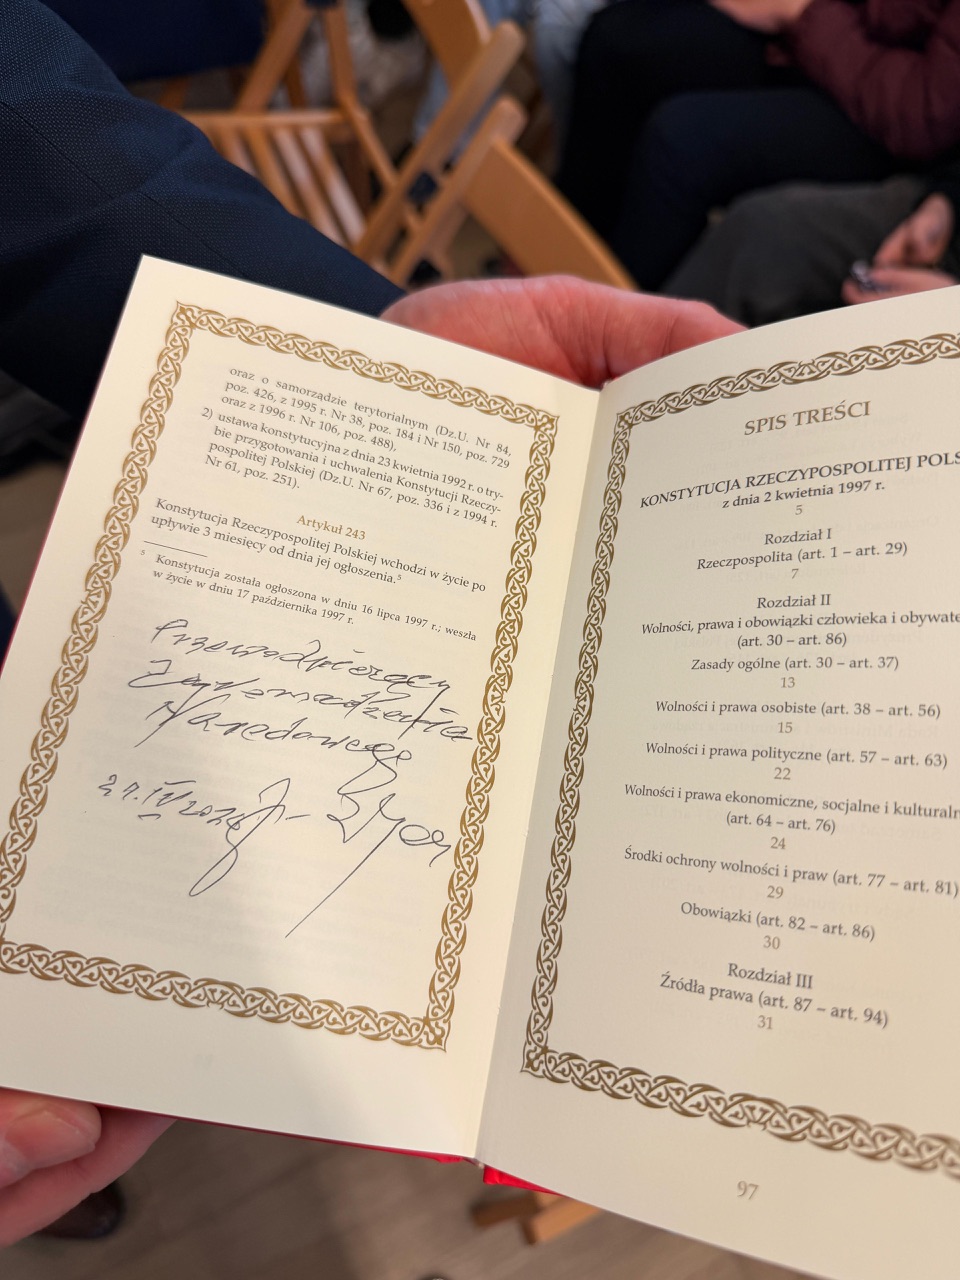 oraz o samorządzie terytorialnym (Dz.U. Nr 84,
poz. 426, z 1995 r. Nr 38, poz. 184 i Nr 150, poz. 729
oraz z 1996 r. Nr 106, poz. 488),
2) ustawa konstytucyjna z dnia 23 kwietnia 1992 r. o try-
bie przygotowania i uchwalenia Konstytucji Rzeczy-
pospolitej Polskiej (Dz.U. Nr 67, poz. 336 i z 1994 r.
Nr 61, poz. 251).
Artykuł 243
Konstytucja Rzeczypospolitej Polskiej wchodzi w życie po
upływie 3 miesięcy od dnia jej ogłoszenia.⁵
⁵ Konstytucja została ogłoszona w dniu 16 lipca 1997 r.; weszła
w życie w dniu 17 października 1997 r.
Przewodniczący
Zgromadzenia
Narodowego
SPIS TREŚCI
KONSTYTUCJA RZECZYPOSPOLITEJ POLS
z dnia 2 kwietnia 1997 r.
5
Rozdział I
Rzeczpospolita (art. 1 – art. 29)
7
Rozdział II
Wolności, prawa i obowiązki człowieka i obywate
(art. 30 – art. 86)
Zasady ogólne (art. 30 – art. 37)
13
Wolności i prawa osobiste (art. 38 – art. 56)
15
Wolności i prawa polityczne (art. 57 – art. 63)
22
Wolności i prawa ekonomiczne, socjalne i kulturaln
(art. 64 – art. 76)
24
Środki ochrony wolności i praw (art. 77 – art. 81)
29
Obowiązki (art. 82 – art. 86)
30
Rozdział III
Źródła prawa (art. 87 – art. 94)
31
97